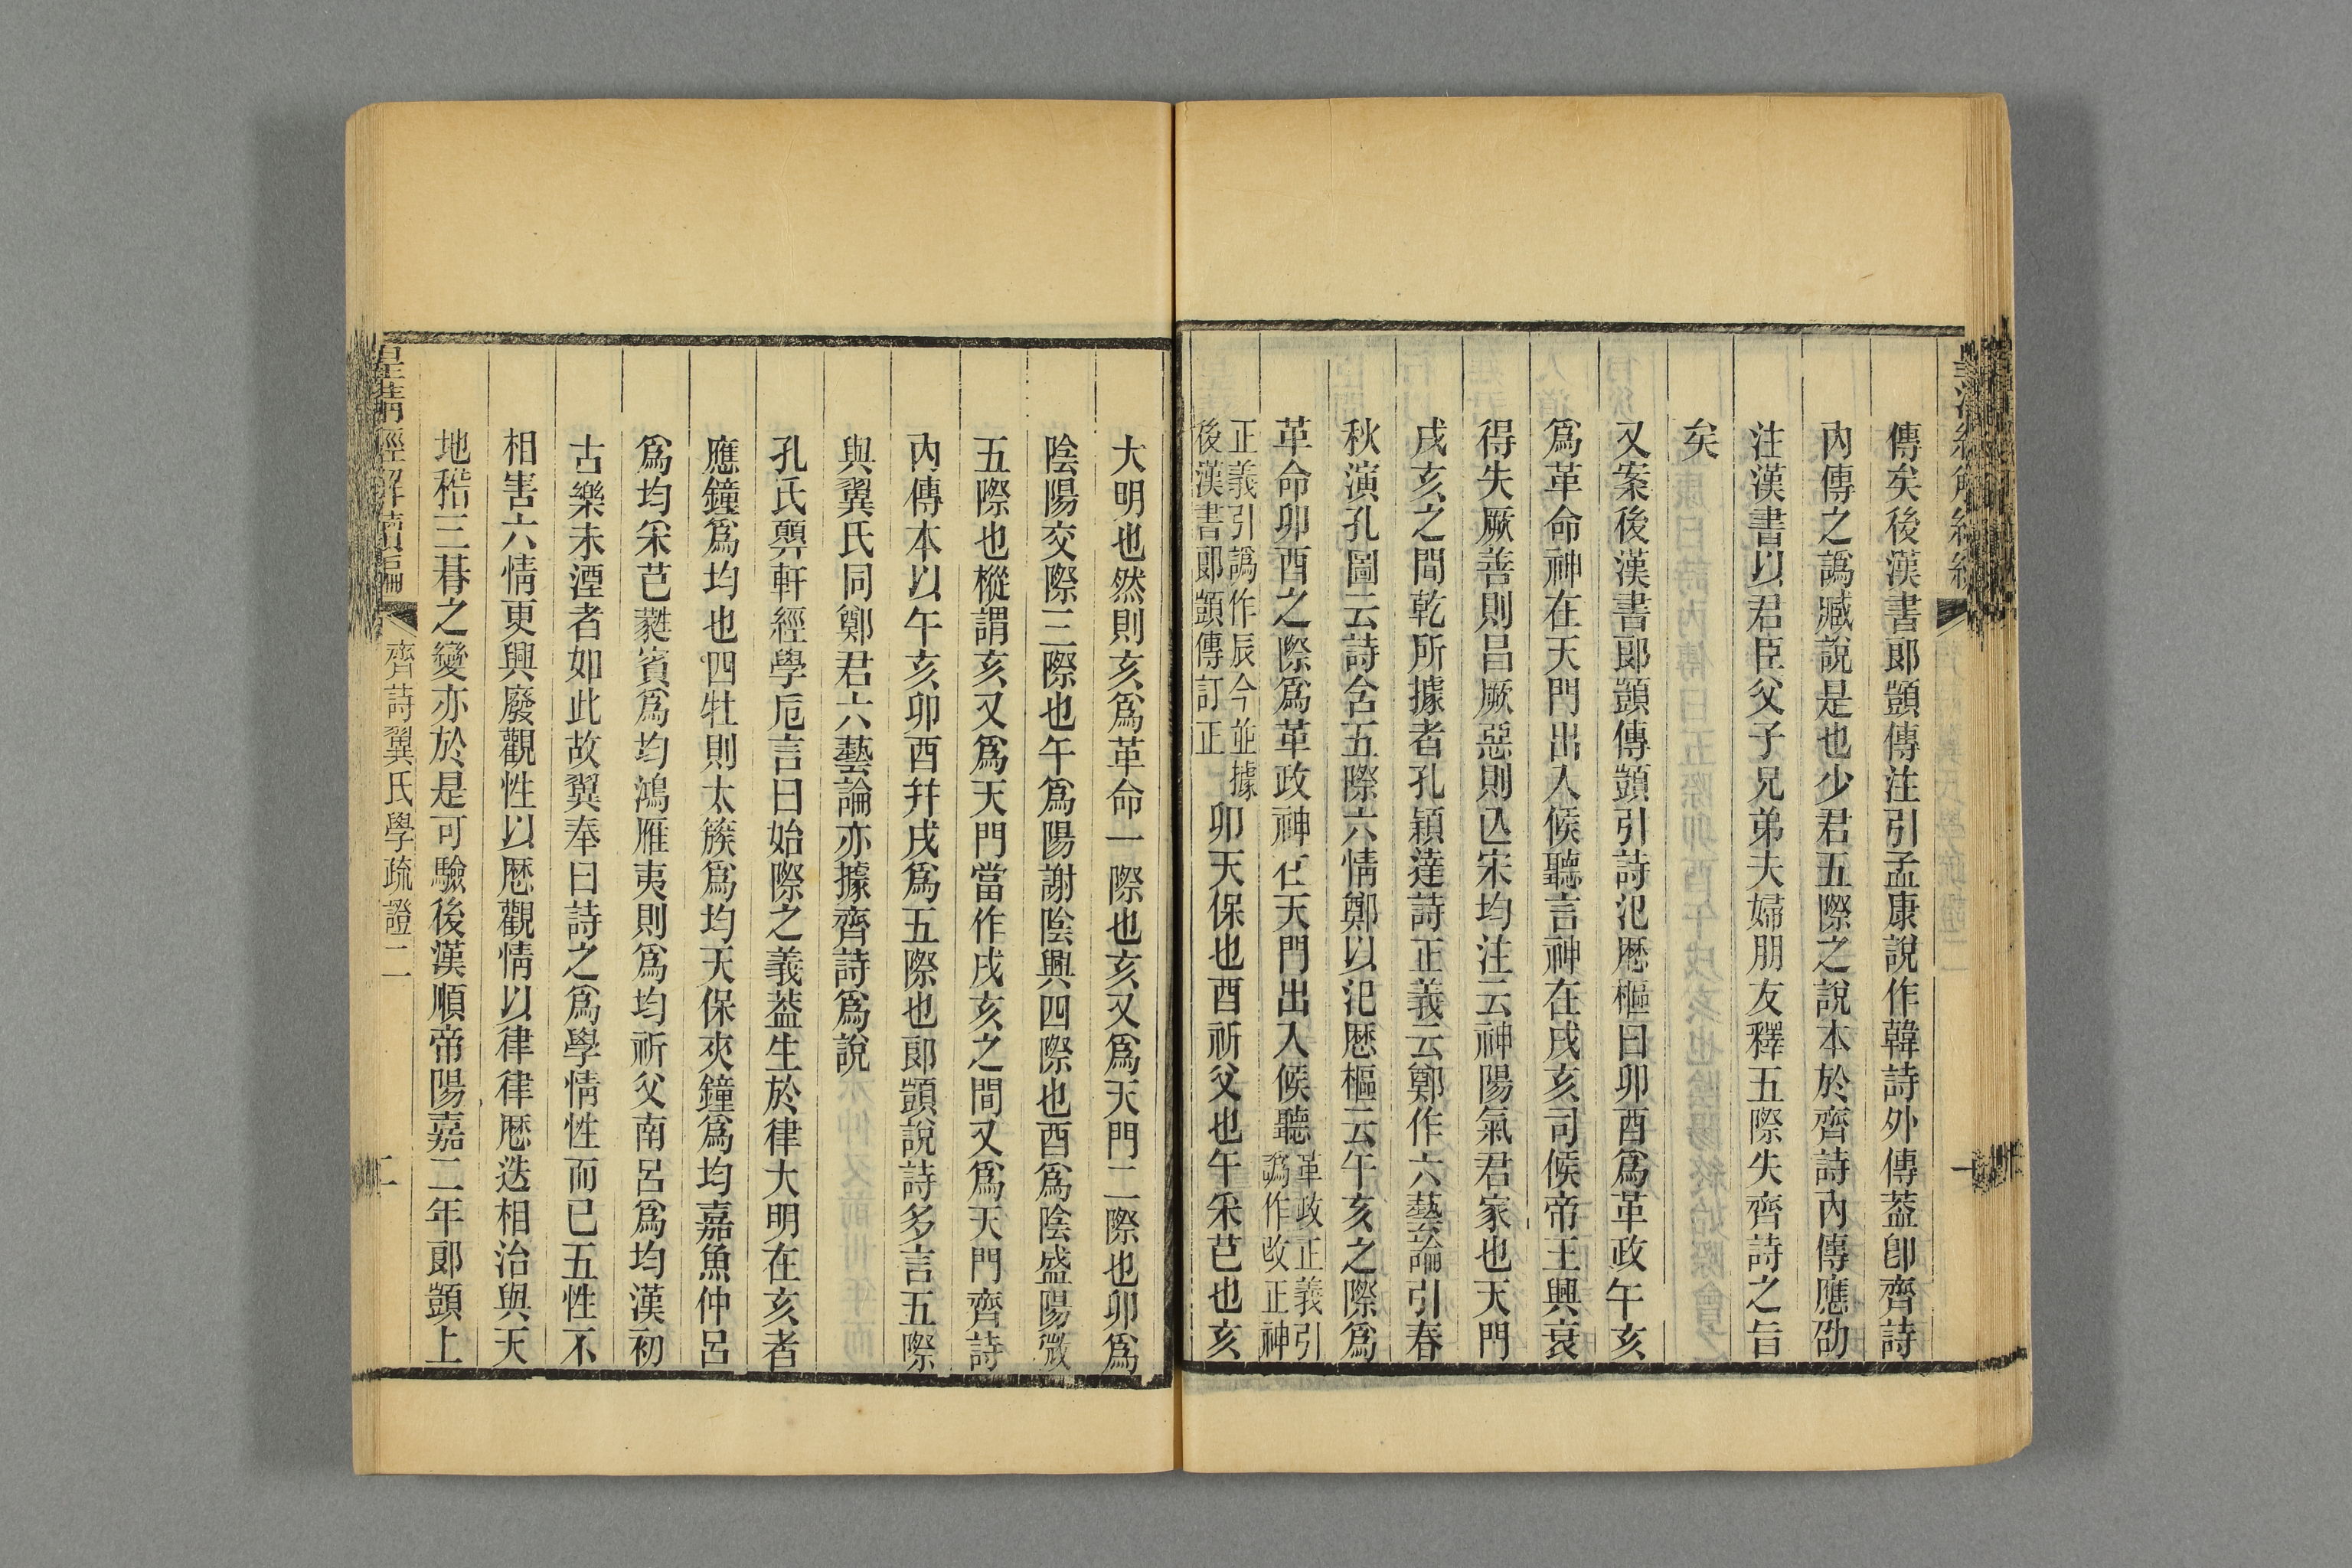 傳矣後漢書郞顗傳注引孟康說作韓詩外傳葢卽齊詩
內傳之譌臧說是也少君五際之說本於齊詩內傳應劭
注漢書以君臣父子兄弟夫婦朋友釋五際失齊詩之旨
矣
又案後漢書郞顗傳顗引詩氾厯樞曰卯酉爲革政午亥
爲革命神在天門出入候聽言神在戌亥司候帝王興衰
得失厥善則昌厥惡則亾宋均注云神陽氣君家也天門
戌亥之間乾所據者孔穎達詩正義云鄭作六藝論引春
秋演孔圖云詩含五際六情鄭以氾厯樞云午亥之際爲
革命卯酉之際爲革政神在天門出入候聽革政正義引譌作改正神
正義引譌作辰今並據後漢書郞顗傳訂正卯天保也酉祈父也午采芑也亥
大明也然則亥爲革命一際也亥又爲天門二際也卯爲
陰陽交際三際也午爲陽謝陰興四際也酉爲陰盛陽微
五際也樅謂亥又爲天門當作戌亥之間又爲天門齊詩
內傳本以午亥卯酉幷戌爲五際也郞顗說詩多言五際
與翼氏同鄭君六藝論亦據齊詩爲說
孔氏顨軒經學卮言曰始際之義葢生於律大明在亥者
應鐘爲均也四牡則太簇爲均天保夾鐘爲均嘉魚仲呂
爲均采芑蕤賓爲均鴻雁夷則爲均祈父南呂爲均漢初
古樂未湮者如此故翼奉曰詩之爲學情性而已五性不
相害六情更興廢觀性以厯觀情以律律厯迭相治與天
地稽三朞之變亦於是可驗後漢順帝陽嘉二年郞顗上
皇淸經解續編
齊詩翼氏學疏證二
二